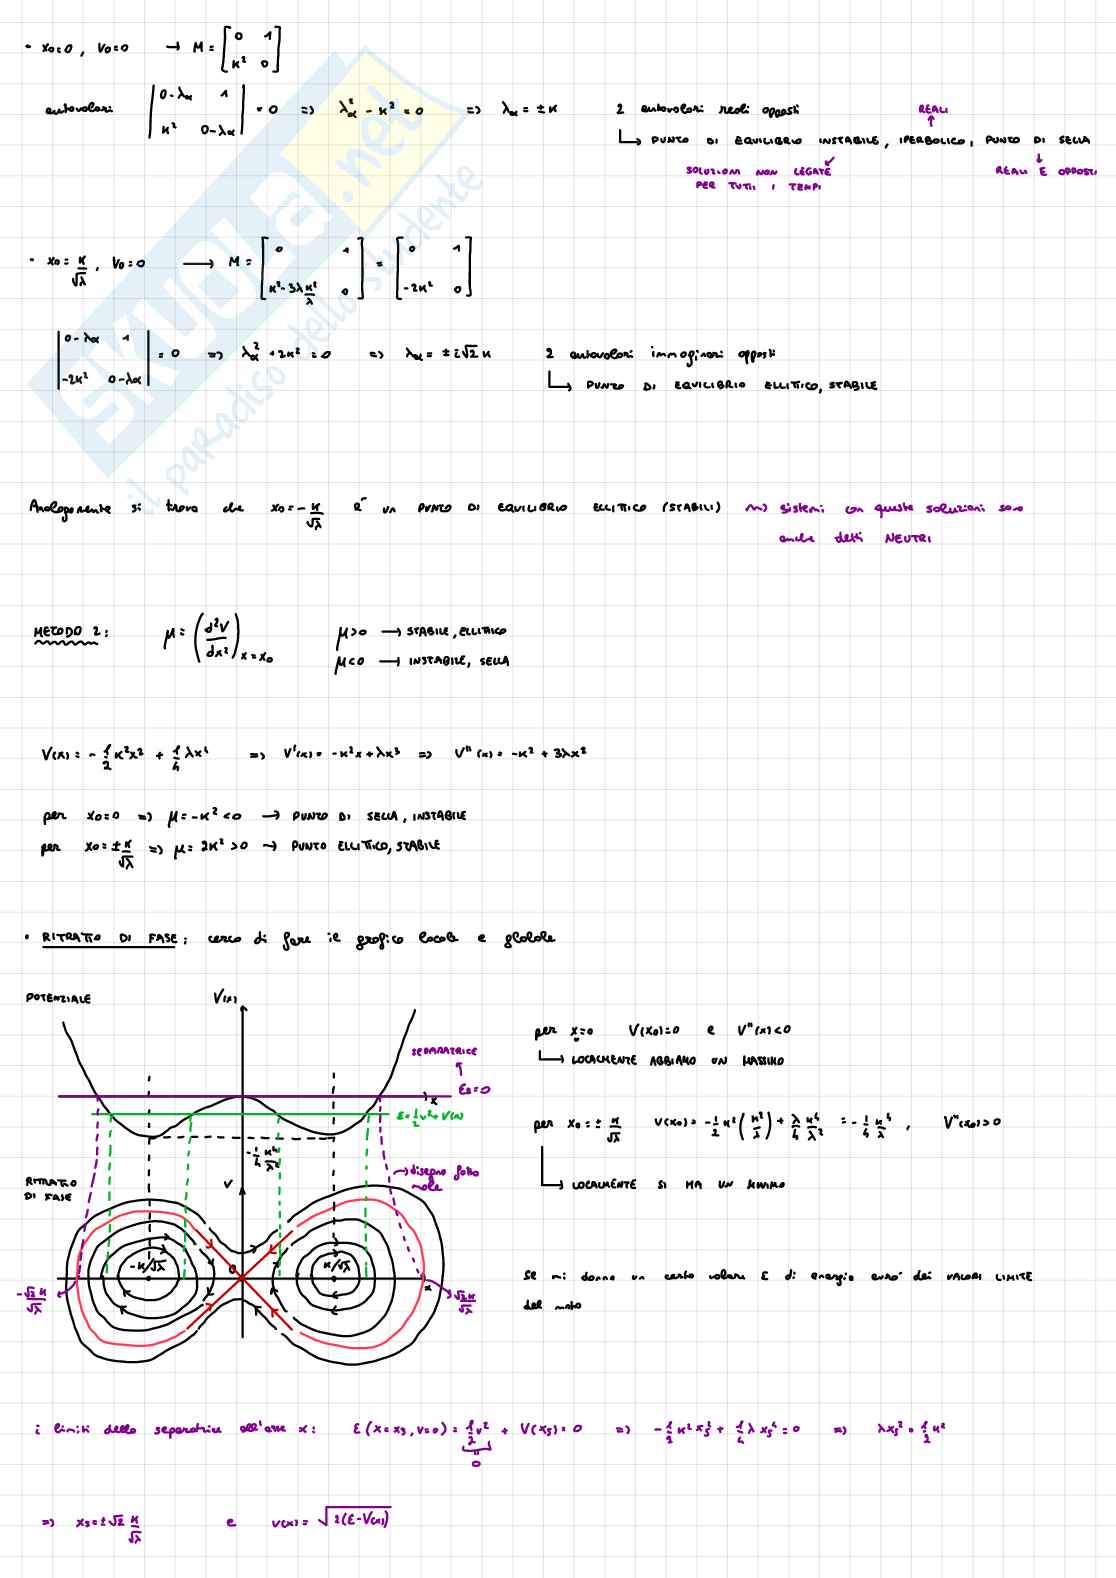 • x₀=0, v₀=0 → M = [0 1; κ² 0]
autovalori |0-λα 1; κ² 0-λα| = 0 => λα² - κ² = 0 => λα = ±κ 2 autovalori reali opposti
REALI
↳ PUNTO DI EQUILIBRIO INSTABILE, IPERBOLICO, PUNTO DI SELLA
SOLUZIONI NON LEGATE PER TUTTI I TEMPI
REALI E OPPOSTI
• x₀ = κ/√λ, v₀=0 → M = [0 1; κ²-3λκ²/λ 0] = [0 1; -2κ² 0]
|0-λα 1; -2κ² 0-λα| = 0 => λα² + 2κ² = 0 => λα = ±i√2 κ 2 autovalori immaginari opposti
↳ PUNTO DI EQUILIBRIO ELLITTICO, STABILE
SKUOLA.net
il paradiso dello studente
Analogamente si trova che x₀ = -κ/√λ è un PUNTO DI EQUILIBRIO ELLITTICO (STABILI) ~> sistemi con queste soluzioni sono
anche detti NEUTRI
METODO 2: μ = (d²V/dx²)x=x₀ μ>0 → STABILE, ELLITTICO
μ<0 → INSTABILE, SELLA
V(x) = -1/2 κ²x² + 1/4 λx⁴ => V'(x) = -κ²x + λx³ => V''(x) = -κ² + 3λx²
per x₀=0 => μ = -κ² <0 → PUNTO DI SELLA, INSTABILE
per x₀ = ± κ/√λ => μ = 2κ² >0 → PUNTO ELLITTICO, STABILE
• RITRATTO DI FASE: cerco di fare il grafico locale e globale
POTENZIALE V(x)
SEPARATRICE
Es=0
x
E = 1/2 v² + V(x)
-1/4 κ⁴/λ
RITRATTO DI FASE
v
→ disegno fatto male
-κ/√λ 0 κ/√λ
x
-√2κ/√λ √2κ/√λ
per x=0 V(x₀)=0 e V''(x)<0
↳ LOCALMENTE ABBIAMO UN MASSIMO
per x₀ = ± κ/√λ V(x₀) = -1/2 κ² (κ²/λ) + λ/4 κ⁴/λ² = -1/4 κ⁴/λ, V''(x₀)>0
↳ LOCALMENTE SI HA UN MINIMO
Se mi danno un certo valore E di energia avrò dei VALORI LIMITE
del moto
i limiti della separatrice all'asse x: E(x=xs, v=0) = 1/2 v² + V(xs) = 0 => -1/2 κ² xs² + 1/4 λ xs⁴ = 0 => λxs² = 1/2 κ²
0
=> xs = ±√2 κ/√λ e v(x) = √2(E-V(x))